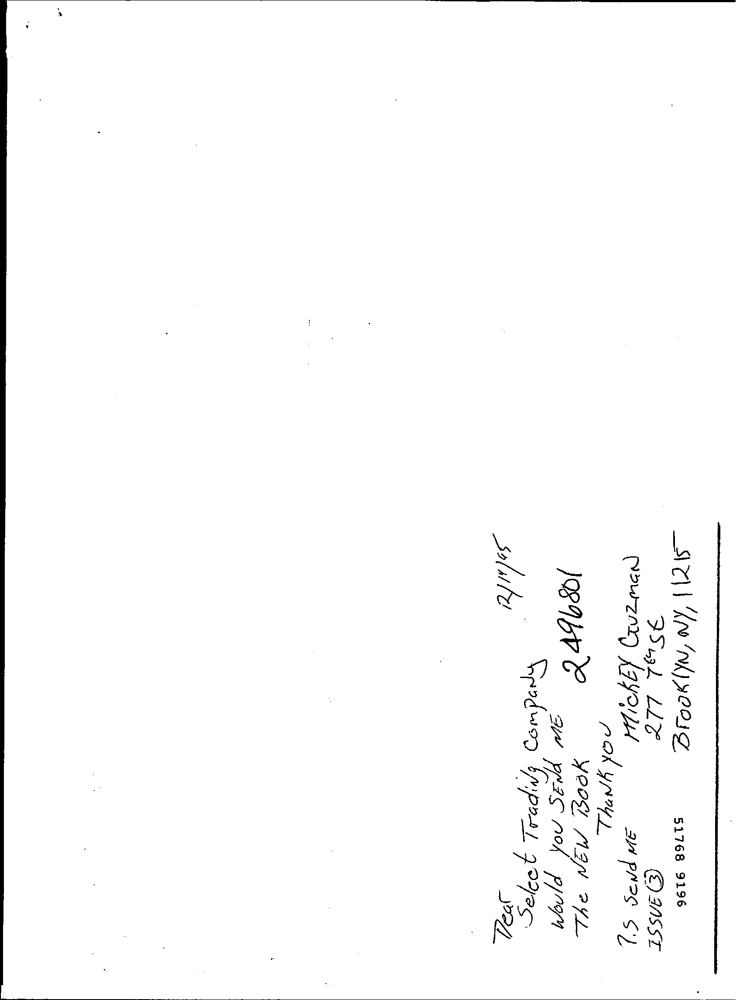 12/14/95
Dear
Select Trading Company
Would you SEND ME
The NEW BOOK
2496801
Thank you
P.S Send ME
ISSUE (3)
Mickey Guzman
277 7th St
Brooklyn, NY, 11215
51768 9196